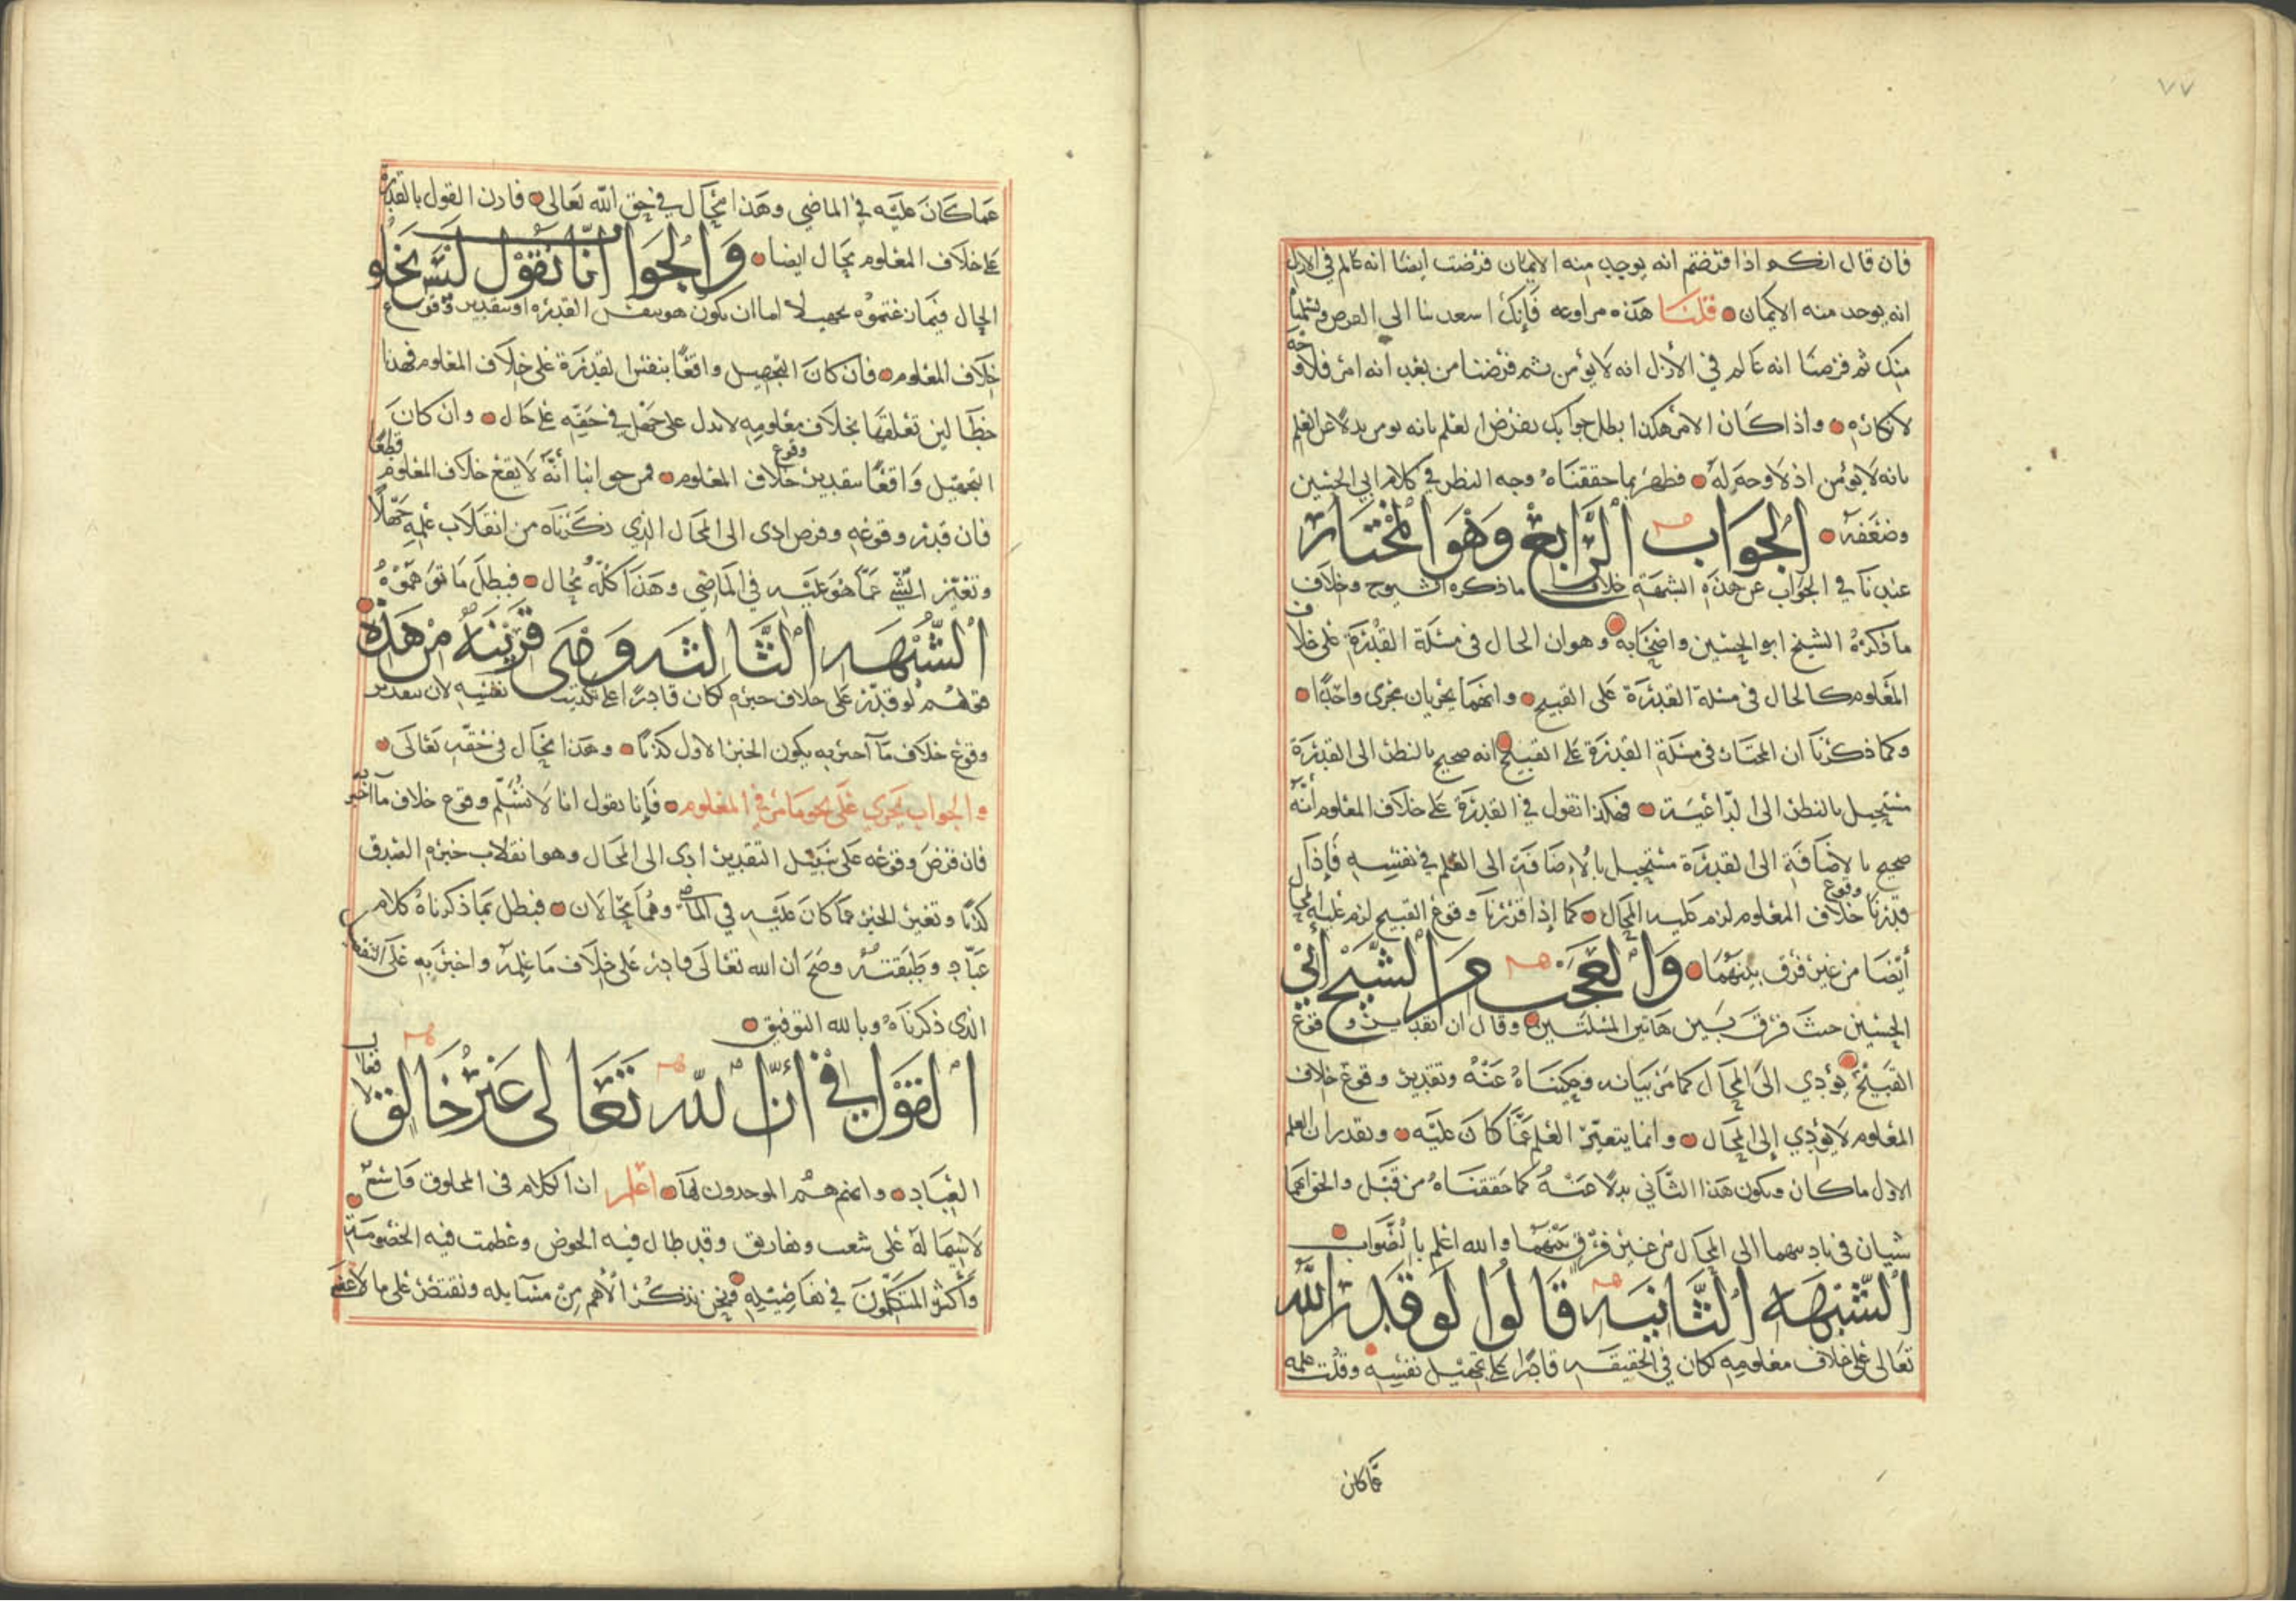 ٧٧
فان قال انكم اذا فرضتم انه يوجب منه الايمان فرضت ايضا انه عالم في الازل
انه يوجد منه الايمان قلنا هذه مراوغه فانك اسعدتنا الى الفرض وتسليما
منك ثم فرضنا انه عالم في الأزل انه لا يؤمن ثم فرضنا من بعد انه امن فلا وجه
لانكاره واذا كان الامر هكذا بطل جوابك بفرض العلم بانه يومن بدلا عن العلم
بانه لا يؤمن اذ لا وجه له فظهر بما حققناه وجه النظر في كلام ابي الحسين
وضعفه الجواب الرابع وهو المختار
عندنا في الجواب عن هذه الشبهة خلاف ما ذكره الشيوخ وخلاف
ما ذكره الشيخ ابو الحسين واصحابه وهو ان الحال في مسئلة القدرة على خلاف
المعلوم كالحال في مسئلة القدرة على القبيح وانهما يجريان مجرى واحدا
وكما ذكرنا ان المختار في مسئلة القدرة على القبيح انه صحيح بالنظر الى القدرة
مستحيل بالنظر الى الداعية فهكذا نقول في القدرة على خلاف المعلوم أنه
صحيح بالاضافة الى القدرة مستحيل بالاضافة الى العلم في نفسه فإذا
قدرنا وقوع خلاف المعلوم لزم عليه المحال كما إذا قدرنا وقوع القبيح لزم عليه المحال
أيضا من غير فرق بينهما والعجب من الشيخ ابي
الحسين حيث فرق بين هاتين المسئلتين وقال ان تقدير وقوع
القبيح يؤدي الى المحال كما مر بيانه وحكيناه عنه وتقدير وقوع خلاف
المعلوم لا يؤدي إلى المحال وانما يتعين العلم عما كان عليه ونقدر ان العلم
الاول ما كان ويكون هذا الثاني بدلا عنه كما حققناه من قبل والحق انهما
سيان في تاديهما الى المحال من غير فرق بينهما والله اعلم بالصواب
الشبهه الثانيه قالوا لو قدر الله
تعالى على خلاف معلومه لكان في الحقيقه قادرا على تجهيل نفسه وقلت علمه
عما كان
عما كان عليه في الماضي وهذا محال في حق الله تعالى فاذن القول بالقدرة
على خلاف المعلوم محال ايضا والجواب انا نقول ليس يخلو
الحال فيما زعمتموه تجهيلا اما ان يكون هو نفس القدره او تقدير وقوع
خلاف المعلوم فان كان التجهيل واقعا بنفس القدرة على خلاف المعلوم فهذا
خطأ لان تعلقها بخلاف معلومه لا يدل على جهل في حقه على حال وان كان
التجهيل واقعا بتقدير وقوع خلاف المعلوم فمن جوابنا أنه لا يقع خلاف المعلوم قطعا
فان قدر وقوعه وفرض ادى الى المحال الذي ذكرناه من انقلاب علمه جهلا
وتغير الشي عما هو عليه في الماضي وهذا كله محال فبطل ما توهموه
الشبهه الثالثه وهي قريبة من هذه
قولهم لو قدر على خلاف خبره لكان قادرا على تكذيب نفسه لان تقدير
وقوع خلاف ما أخبر به يكون الخبر الاول كذبا وهذا محال في حقه تعالى
والجواب يجري على نحو ما مر في المعلوم فإنا نقول انا لا نسلم وقوع خلاف ما اخبر به
فان فرض وقوعه على سبيل التقدير ادى الى المحال وهو انقلاب خبره الصدق
كذبا وتغير الخبر عما كان عليه في الماضي وهما محالان فبطل بما ذكرناه كلام
عباد وطبقته وصح ان الله تعالى قادر على خلاف ما علمه واخبر به على التفصيل
الذي ذكرناه وبالله التوفيق
القول في أن الله تعالى غير خالق لافعال
العباد وانهم هم الموحدون لها اعلم ان الكلام في المخلوق واسع
لا نهاية له على شعب وتفاريق وقد طال فيه الخوض وعظمت فيه الخصومة
وأكثر المتكلمون في تفاصيله ونحن نذكر الأهم من مسايله ونقتصر على ما لا غنى